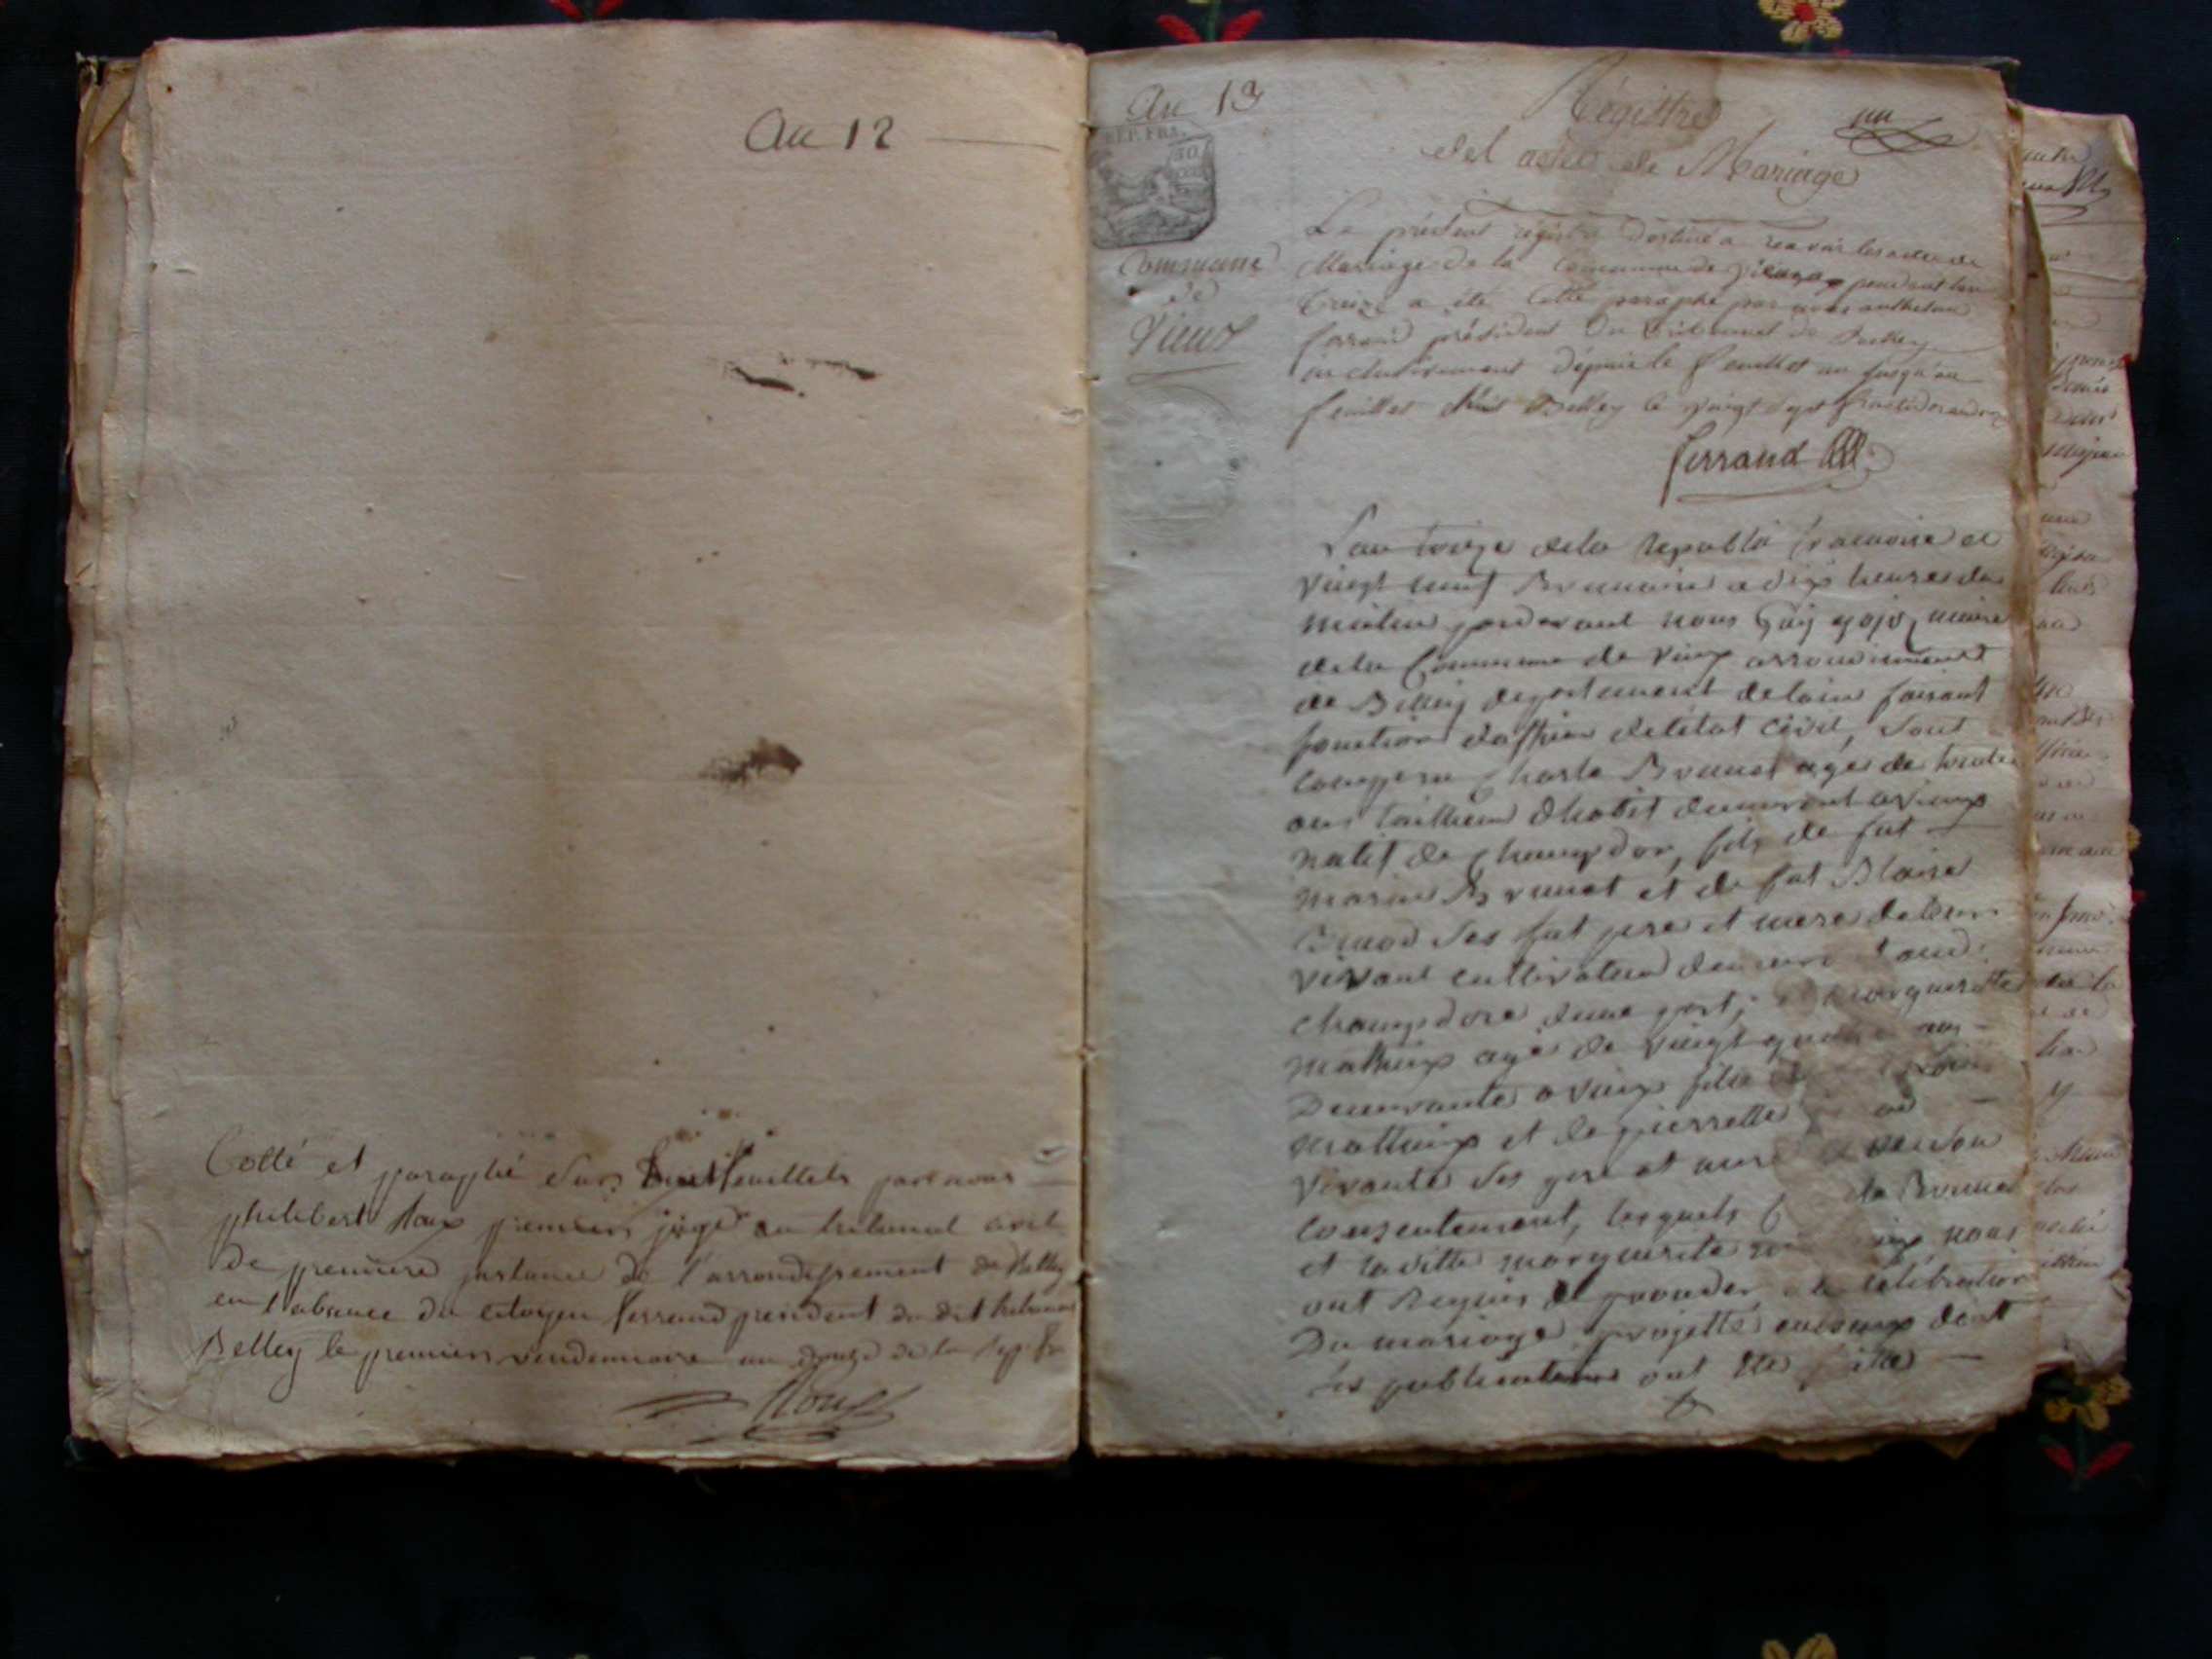 An 12
Cotté et paraphé sur huit feuillets par nous
philibert Roux premier juge au tribunal civil
de premiere instance de l'arrondissement de Belley
en l'absence du citoyen ferrand president du dit tribunal
Belley le premier vendemiaire an douze de la rep. fr
Roux
An 13
REP. FRA.
Commune
de
Vieux
Régistre
un
des actes de Mariage
Le présent régistre destiné a recevoir les actes de
Mariage de la commune de vieux pendant l'an
treize a été cotté paraphé par nous
ferrand président du tribunal de Belley
depuis le feuillet un jusqu'au
feuillet huit Belley le vingt sept fructidor an
ferrand
Lan treize dela republi francaise et
vingt neuf Brumaire a dix heures du
matin pardevant nous Guy maire
dela Commune de vieux arrondissement
de Belley departement delain faisant
fonction dofficier deletat civil, sont
comparu Charle Brunet agé de trente
ans tailleur dhabit demeurant a vieux
natif de champdor, fils de fut
marin Brunet et de fut Blaise
ses fut pere et mere de leur
vivant cultivateur
champdore dune part; et margueritte
mathieux agé de vingt ans
Demeurante a vieux fille
mathieux et de pierrette
vivante ses pere et mere
consentement, lesquels Brunet
et laditte marguerite nous
ont Requis de proceder a la celebration
Du mariage projetté entreux dont
les publications ont été faites